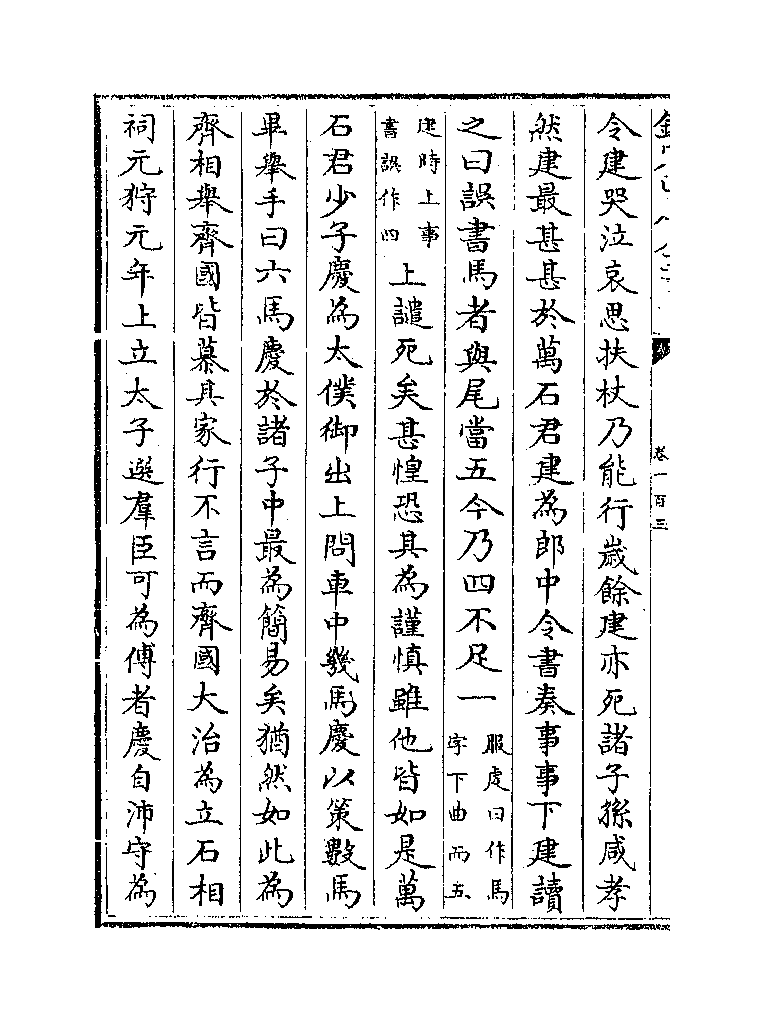 卷一百三
令建哭泣哀思扶杖乃能行歲餘建亦死諸子孫咸孝
然建最甚甚於萬石君建為郎中令書奏事事下建讀
之曰誤書馬者與尾當五今乃四不足一服虔曰作馬字下曲而五
建時上事書誤作四上譴死矣甚惶恐其為謹慎雖他皆如是萬
石君少子慶為太僕御出上問車中幾馬慶以策數馬
畢舉手曰六馬慶於諸子中最為簡易矣猶然如此為
齊相舉齊國皆慕其家行不言而齊國大治為立石相
祠元狩元年上立太子選羣臣可為傅者慶自沛守為